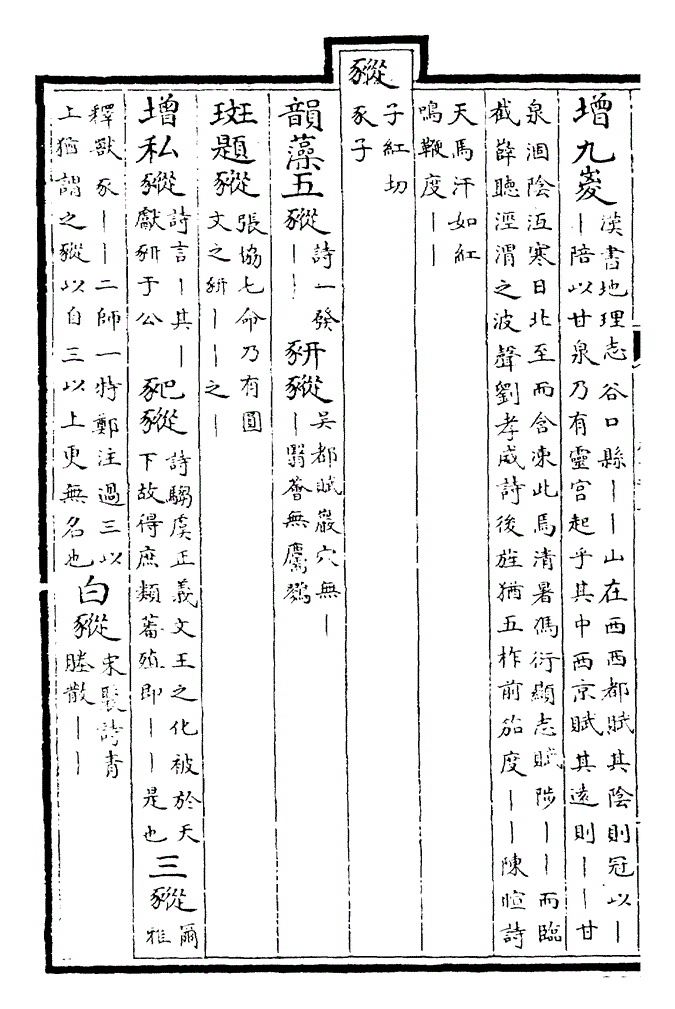 增九嵏
漢書地理志谷口縣｜｜山在西西都賦其陰則冠以｜
｜陪以甘泉乃有靈宫起乎其中西京賦其遠則｜｜甘
泉涸陰沍寒日北至而含凍此焉清暑馮衍顯志賦陟｜｜而臨
截嶭聽涇渭之波聲劉孝威詩後旌猶五柞前笳度｜｜陳暄詩
天馬汗如紅
鳴鞭度｜｜
豵
子紅切
豕子
韻藻五豵
詩一發
｜｜
豜豵
吳都賦巖穴無｜
｜翳薈無麢鷚
斑題豵
張協七命乃有圓
文之豜｜｜之｜
增私豵
詩言｜其｜
獻豜于公
豝豵
詩騶虞正義文王之化被於天
下故得庶類蕃殖即｜｜是也
三豵
爾
雅
釋獸豕｜｜二師一特鄭注過三以
上猶謂之豵以自三以上更無名也
白豵
宋褧詩青
塍散｜｜